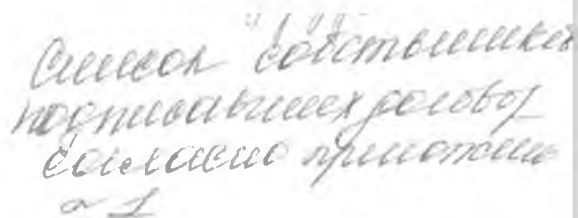 Список собственников
подписавших договор
согласно приложению
№ 1